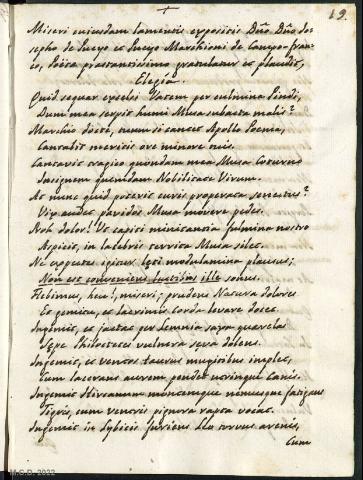 19.
Miseri cujusdam lamentis expositis Dño Dño Jo-
sepho de Sueyo et Sueyo Marchioni de Campo fran-
co, Poëtæ præstantissimo gratulatur et plaudit,
Elegia.
Quid sequar excelsi Vatem per culmina Pindi,
Dum mea serpit humi Musa subacta malis?
Marchio docte, tuum si cantet Apollo Poema,
Cantabit ore minore tuis.
Cantavit tragico quondam mea Musa Coturno
Insignem quemdam Nobilitate Virum.
At nunc quid poterit curis properata senectus?
Vix audet pavidos Musa movere pedes.
Noh dolor! Ut capiti minitantia fulmina nostro
Aspicit, in latebris territa Musa silet.
Ne expectes igitur læti modulamina plausus;
Non est conveniens luctibus ille sonus.
Flebimus, heu!, miseri; prudens Natura dolores
Et gemitu, et lacrimis corda levare docet.
Ingemit, et jactat per Lemnia saxa querelas
Sæpe Philoctetes vulnera sæva dolens.
Ingemit, et ventos taurus mugitibus implet,
Cum lacerans aurem pendet utrinque canis.
Ingemit Hircanum montemque nemusque fatigans
Tigris, cum ventris pignora rapta vocat.
Ingemit in Lybicis furiens Leo torvus arenis,
Cum
M.C.D. 2022